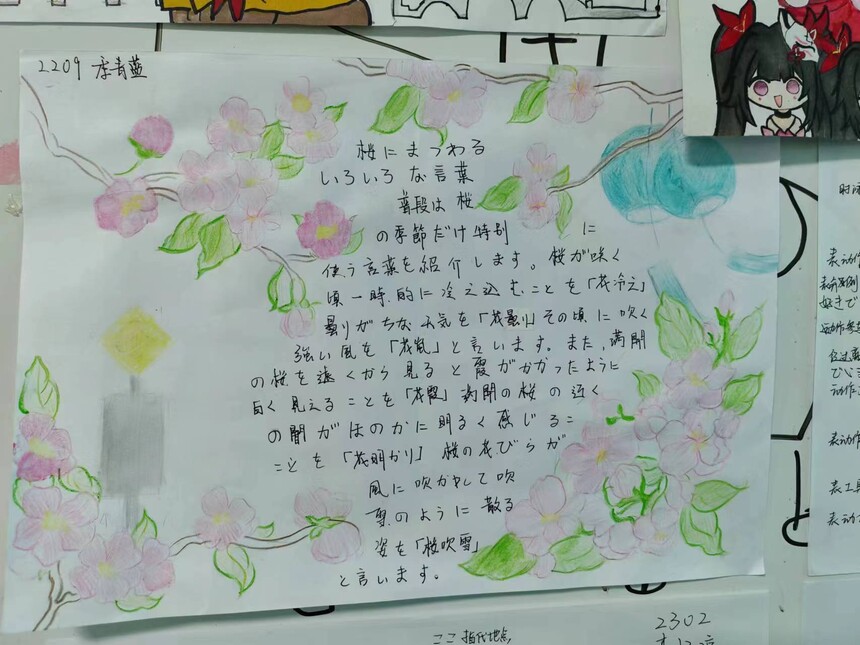 2209 李青蓝
桜にまつわる
いろいろな言葉
普段は桜
の季節だけ特別に
使う言葉を紹介します。桜が咲く
頃一時的に冷え込むことを「花冷え」
曇りがちな天気を「花曇り」その頃に吹く
強い風を「花嵐」と言います。また、満開
の桜を遠くから見ると霞がかかったように
白く見えることを「花霞」満開の桜の近く
の闇がほのかに明るく感じるこ
ことを「花明かり」桜の花びらが
風に吹かれて吹
雪のように散る
姿を「桜吹雪」
と言います。
ここ 指代地点
2302
表动作
表工具